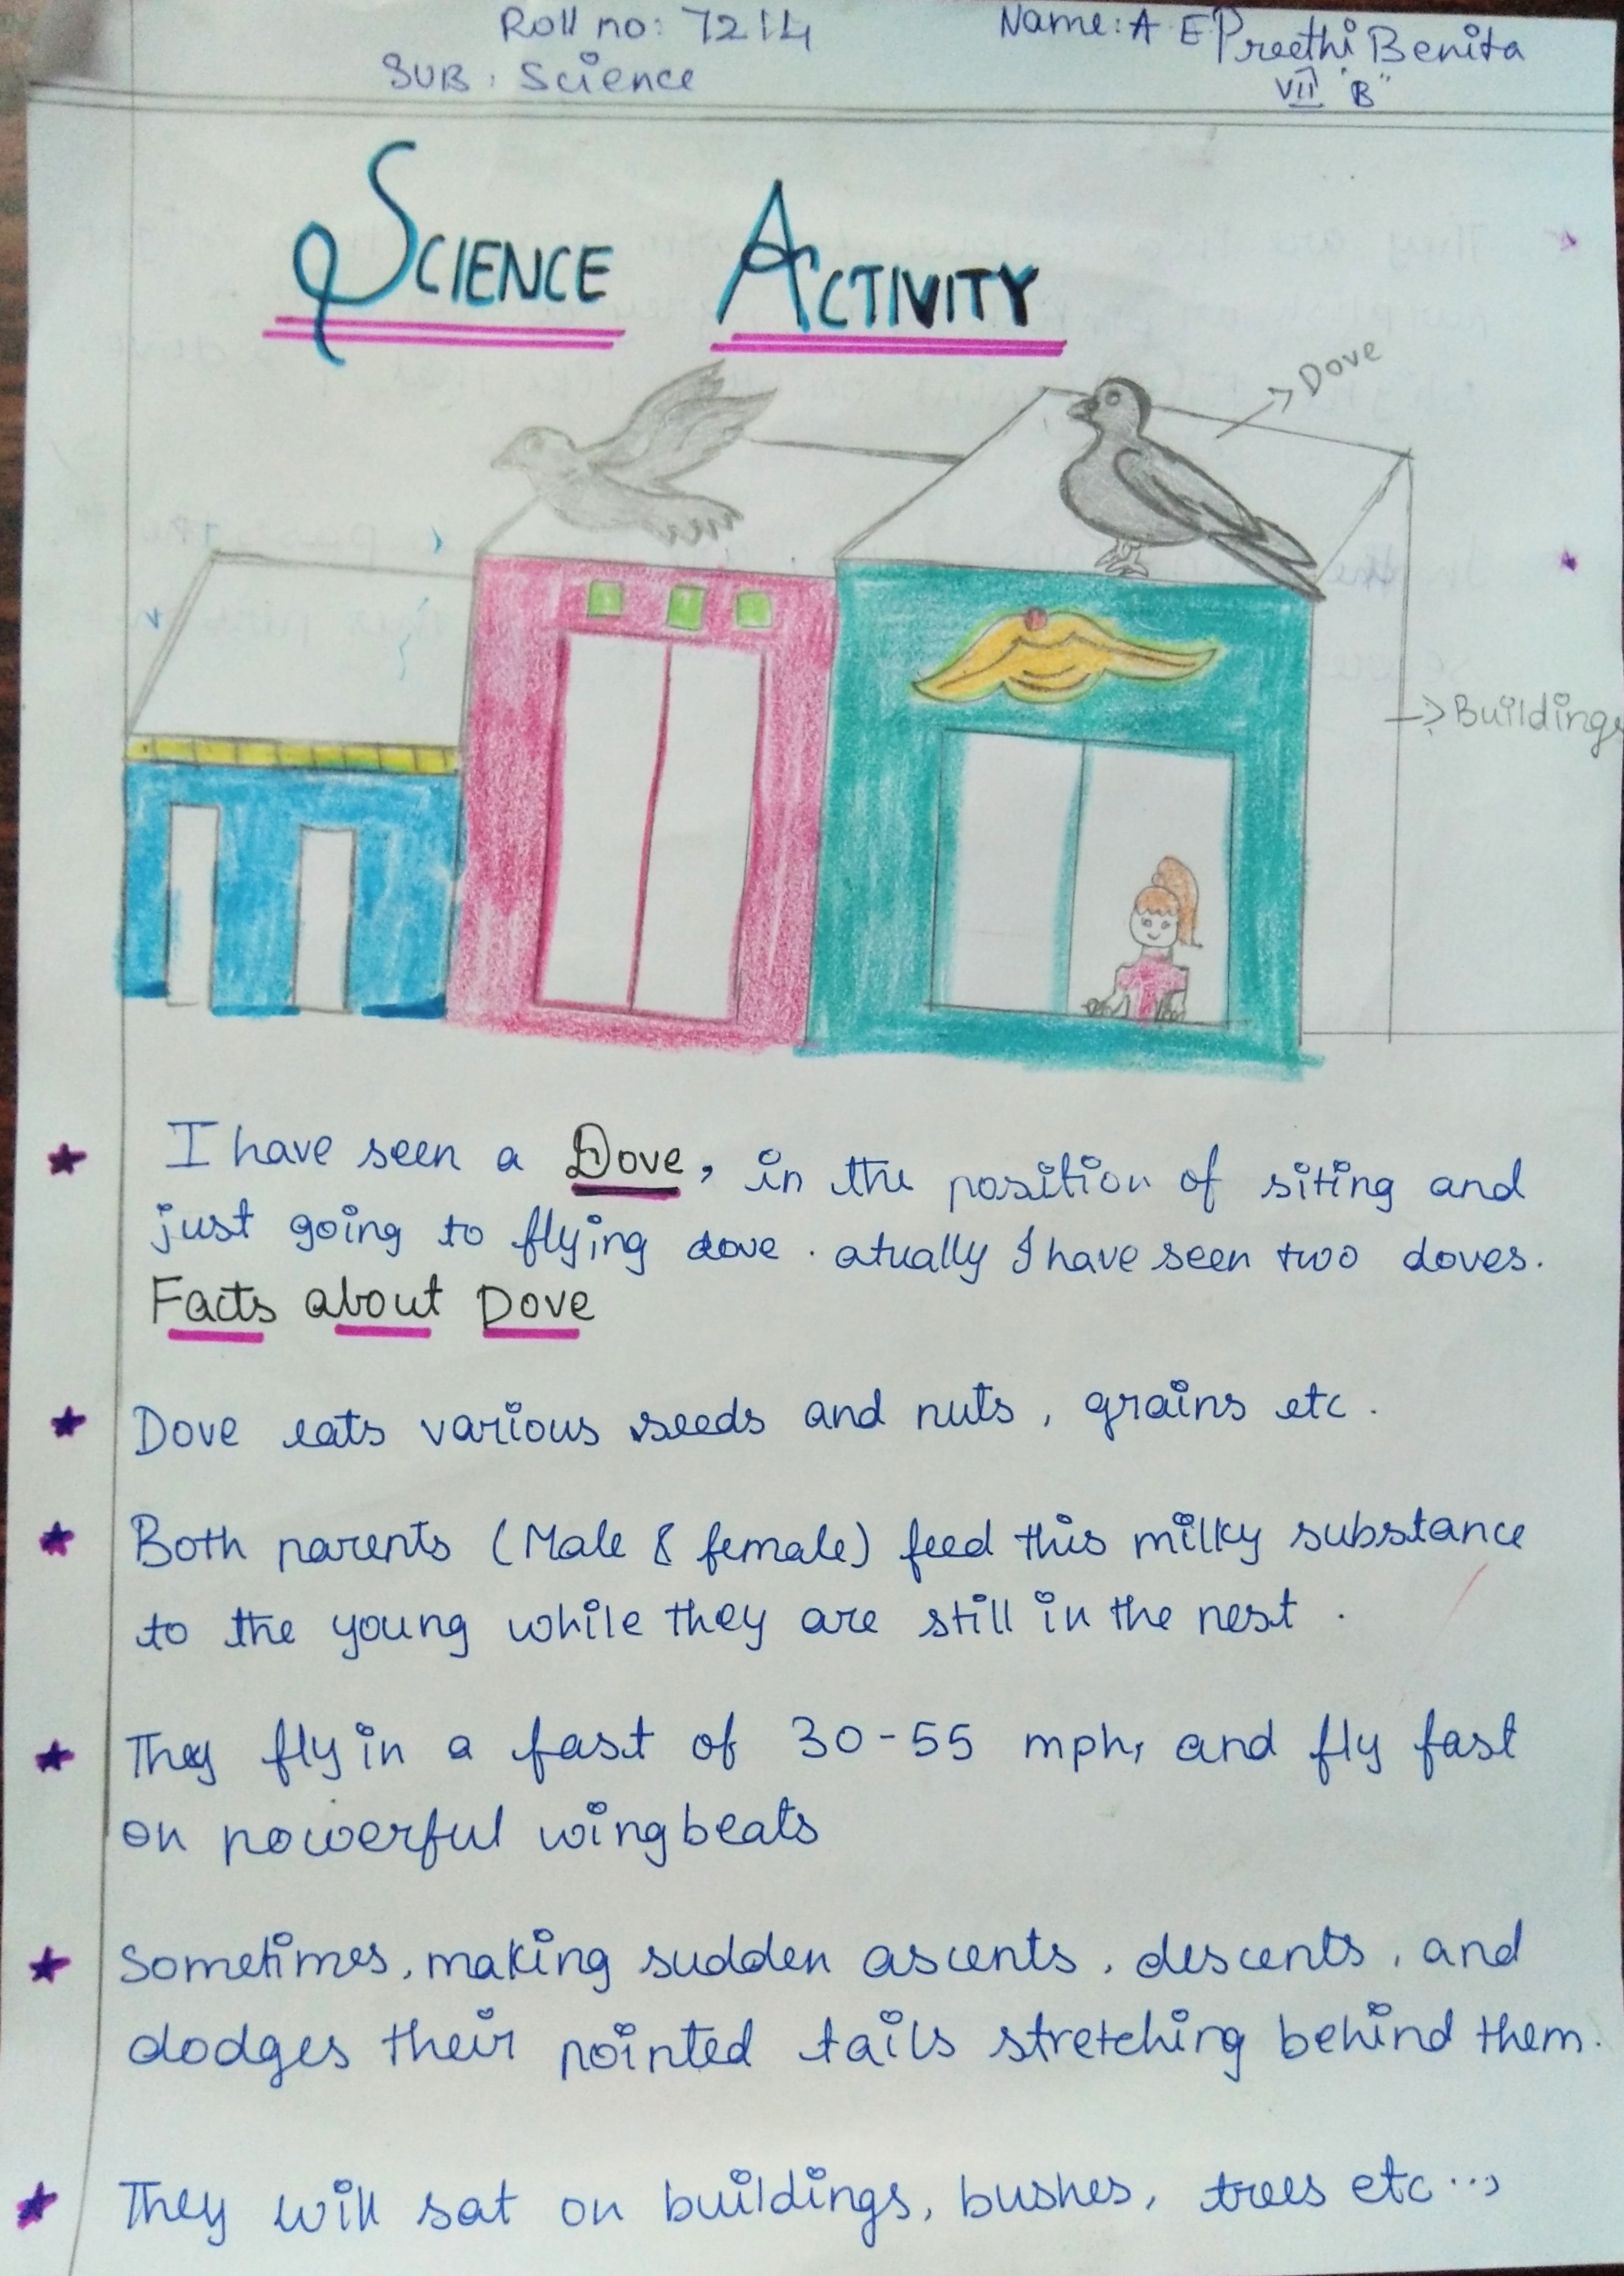 Roll no: 7214 Name: A E Preethi Benita
SUB: Science VII "B"
SCIENCE ACTIVITY
Dove
Buildings
I have seen a Dove, in the position of siting and
just going to flying dove. atually I have seen two doves.
Facts about Dove
Dove eats various seeds and nuts, grains etc.
Both parents (Male & female) feed this milky substance
to the young while they are still in the nest.
They fly in a fast of 30-55 mph, and fly fast
on powerful wingbeats
Sometimes, making sudden ascents, descents, and
dodges their pointed tails stretching behind them.
They will sat on buildings, bushes, trees etc...,